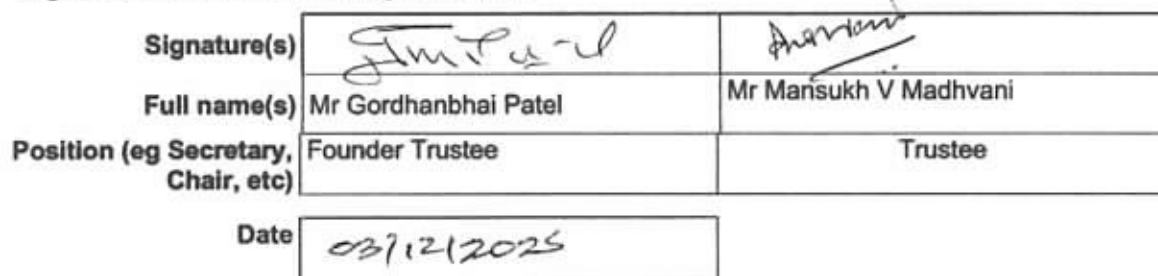 Signature(s)
Full name(s) Mr Gordhanbhai Patel Mr Mansukh V Madhvani
Position (eg Secretary, Chair, etc) Founder Trustee Trustee
Date 03/12/2025